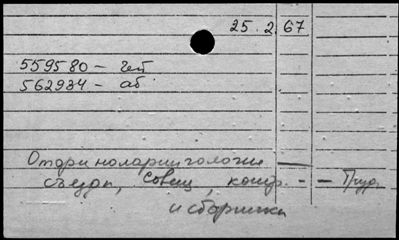 25.2.67
559580 – чт
562934 – аб
Оторинолярингологии —
съезды, совещ, конф. – – Труды
и сборники